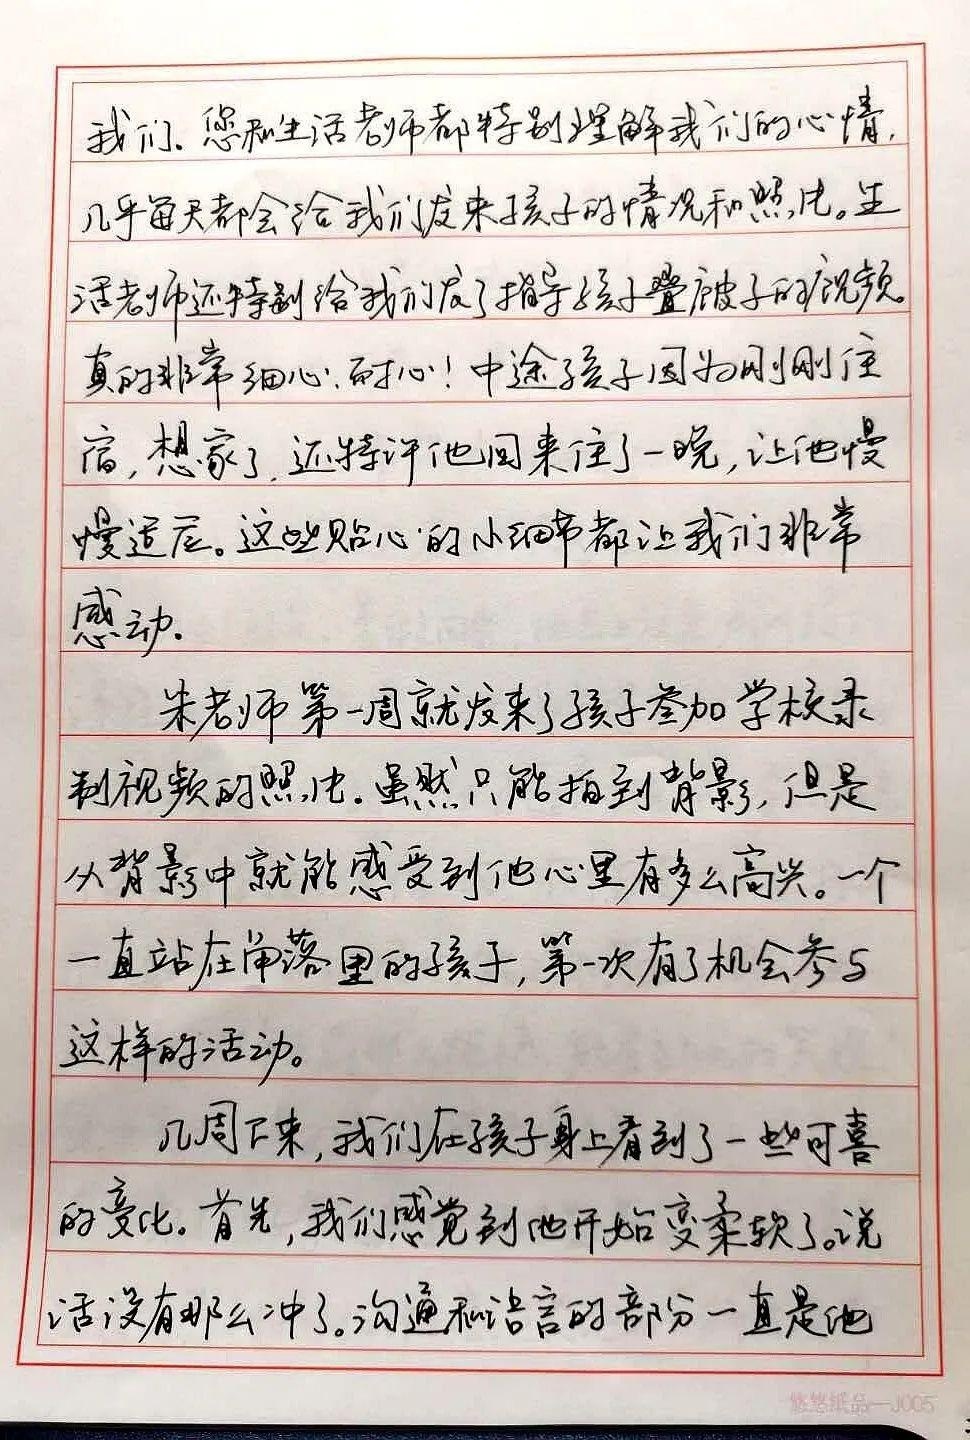 我们。您和生活老师都特别理解我们的心情,
几乎每天都会给我们发来孩子的情况和照片。生
活老师还特别给我们发了指导孩子叠被子的视频。
真的非常细心、耐心!中途孩子因为刚刚住
宿,想家了,还特许他回来住了一晚,让他慢
慢适应。这些贴心的小细节都让我们非常
感动。
朱老师第一周就发来了孩子参加学校录
制视频的照片。虽然只能拍到背影,但是
从背影中就能感受到他心里有多么高兴。一个
一直站在角落里的孩子,第一次有了机会参与
这样的活动。
几周下来,我们在孩子身上看到了一些可喜
的变化。首先,我们感觉到他开始变柔软了。说
话没有那么冲了。沟通和语言的部分一直是他
悠悠纸品—J005